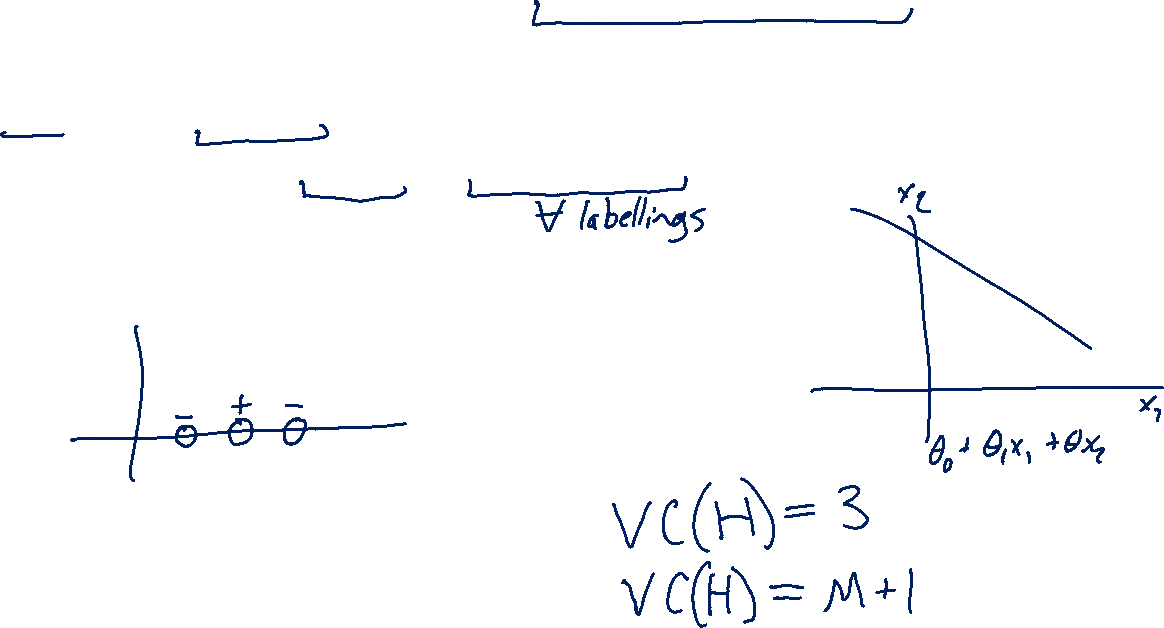 ∀ labellings
x₂
− + −
x₁
θ₀ + θ₁x₁ + θx₂
VC(H) = 3
VC(H) = M+1